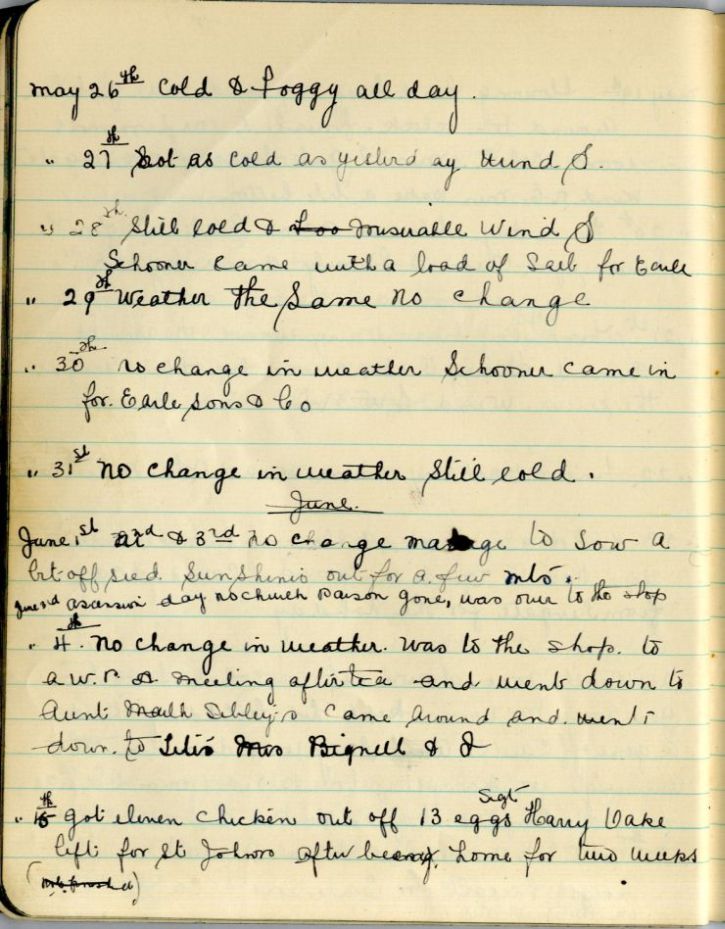 May 26th Cold & Foggy all day.
" 27th Not as cold as yesterday Wind S.
" 28th Still cold & Too misirable Wind S
Schooner came with a load of Salt for Earle
" 29th Weather the Same No change
" 30th no change in weather Schooner came in
for Earle sons & Co
" 31st No change in weather Still cold.
June.
June 1st 2nd & 3rd No change manage to sow a
bit off seed. Sun Shinis out for a few mts.
June 3rd assension day no church Parson gone, was over to the shop
" 4th No change in weather. Was to the shop. to
a W. P. A meeting after tea and went down to
Aunt Sibley's Came around and went
down. to Mrs Bignell & I
" 5th got eleven chicken out off 13 eggs Sgt Harry Vake
left for St Johns after being home for two weeks